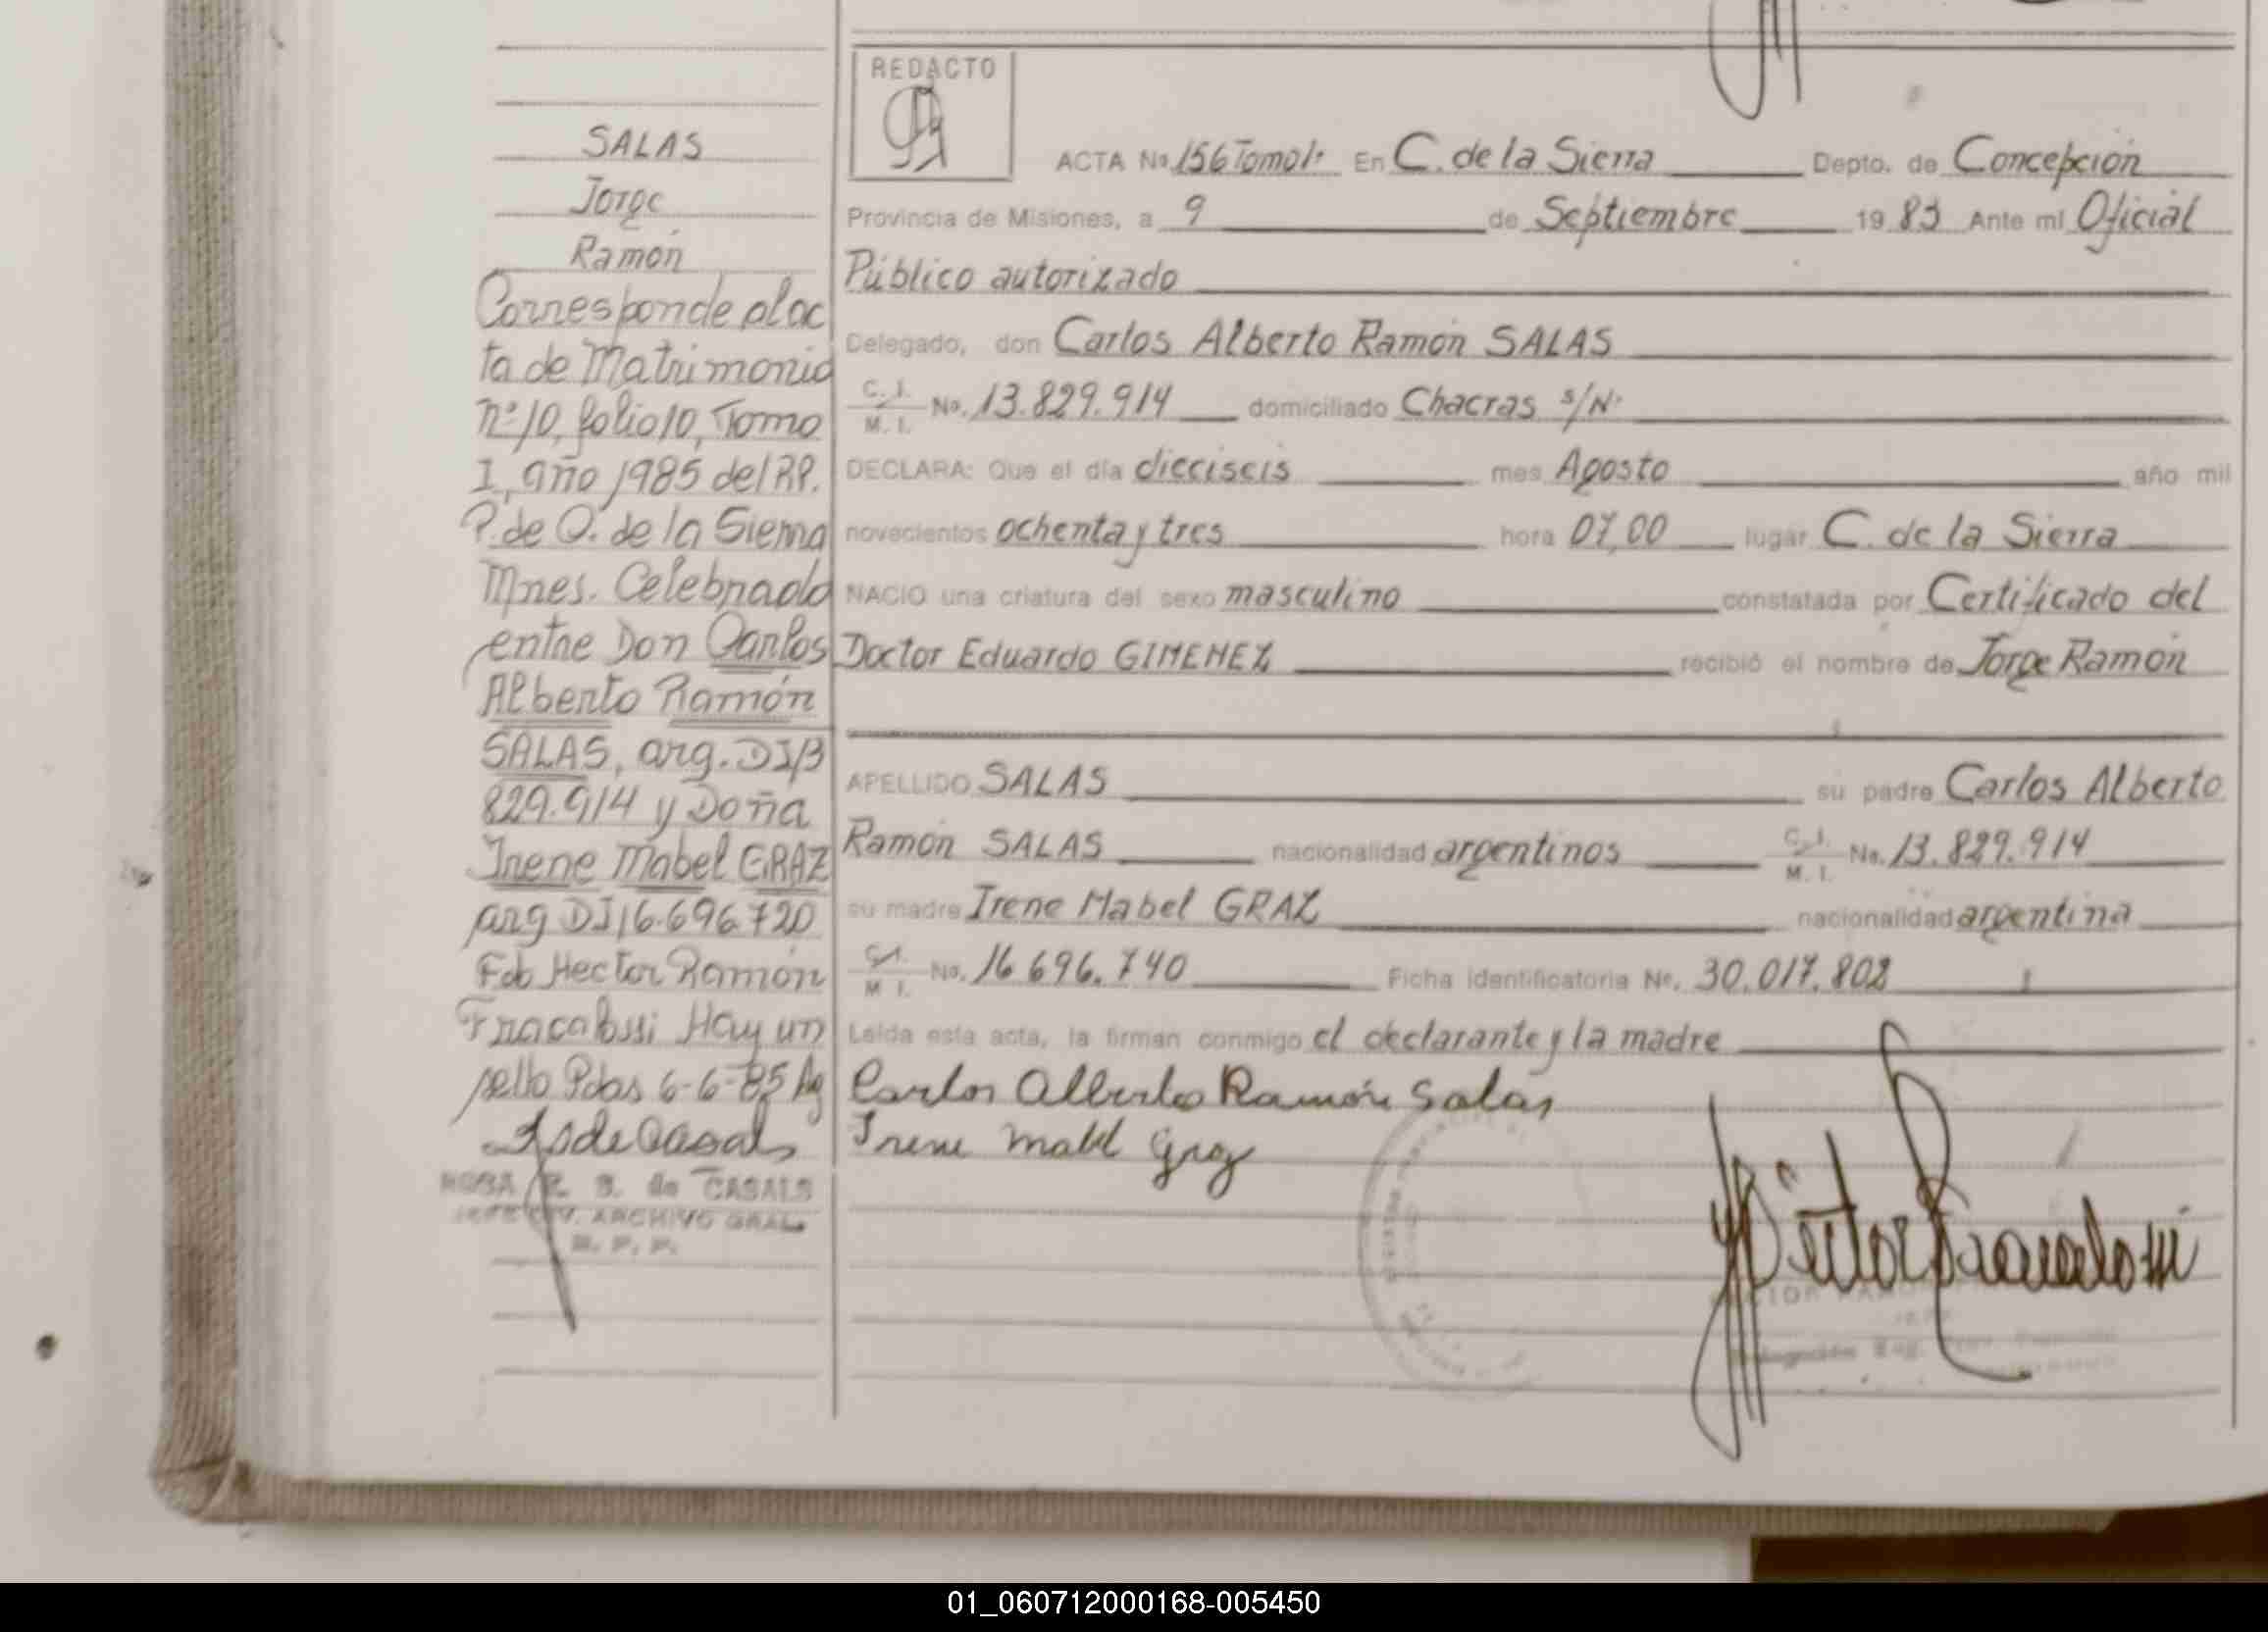 REDACTO
SALAS
Jorge
Ramón
Corresponde al ac
ta de Matrimonio
nº 10, folio 10, Tomo
I, año 1985 del R.P.
P. de C. de la Sierra
Mnes. Celebrado
entre Don Carlos
Alberto Ramón
SALAS, arg. DI 13
829.914 y Doña
Irene Mabel GRAZ
arg DI 16.696.720
Fdo Hector Ramón
Fracalossi Hay un
sello Pdas 6-6-85
ROSA R. S. de CASALS
JEFE DIV. ARCHIVO GRAL.
R. P. P.
ACTA No. 156 Tomo 1º En C. de la Sierra Depto. de Concepción
Provincia de Misiones, a 9 de Septiembre 19 83 Ante mí Oficial
Público autorizado
Delegado, don Carlos Alberto Ramón SALAS
C. I. M. I. No. 13.829.914 domiciliado Chacras s/Nº
DECLARA: Que el día dieciseis mes Agosto año mil
novecientos ochenta y tres hora 07,00 lugar C. de la Sierra
NACIO una criatura del sexo masculino constatada por Certificado del
Doctor Eduardo GIMENEZ recibió el nombre de Jorge Ramón
APELLIDO SALAS su padre Carlos Alberto
Ramón SALAS nacionalidad argentinos C. I. M. I. No. 13.829.914
su madre Irene Mabel GRAZ nacionalidad argentina
C.I. M I. No. 16 696.740 Ficha identificatoria No. 30.017.802
Leída esta acta, la firman conmigo el declarante y la madre
Carlos Alberto Ramón Salas
Irene Mabel Graz
01_060712000168-005450